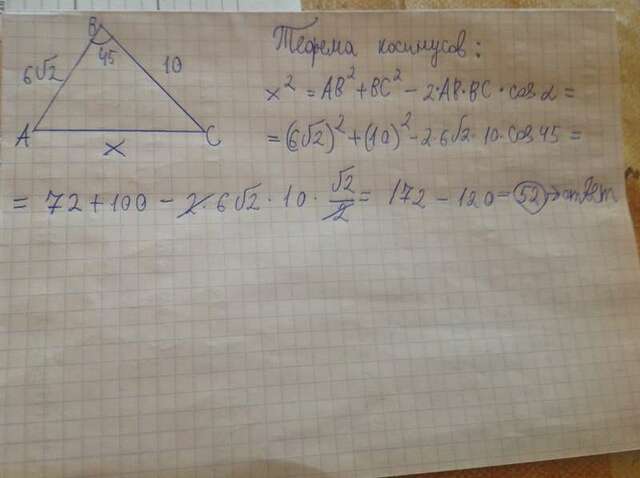 B
45
6√2
10
A
x
C
Теорема косинусов:
x² = AB² + BC² - 2·AB·BC·cos α =
= (6√2)² + (10)² - 2·6√2·10·cos 45 =
= 72 + 100 - 2·6√2·10·√2/2 = 172 - 120 = 52 → ответ